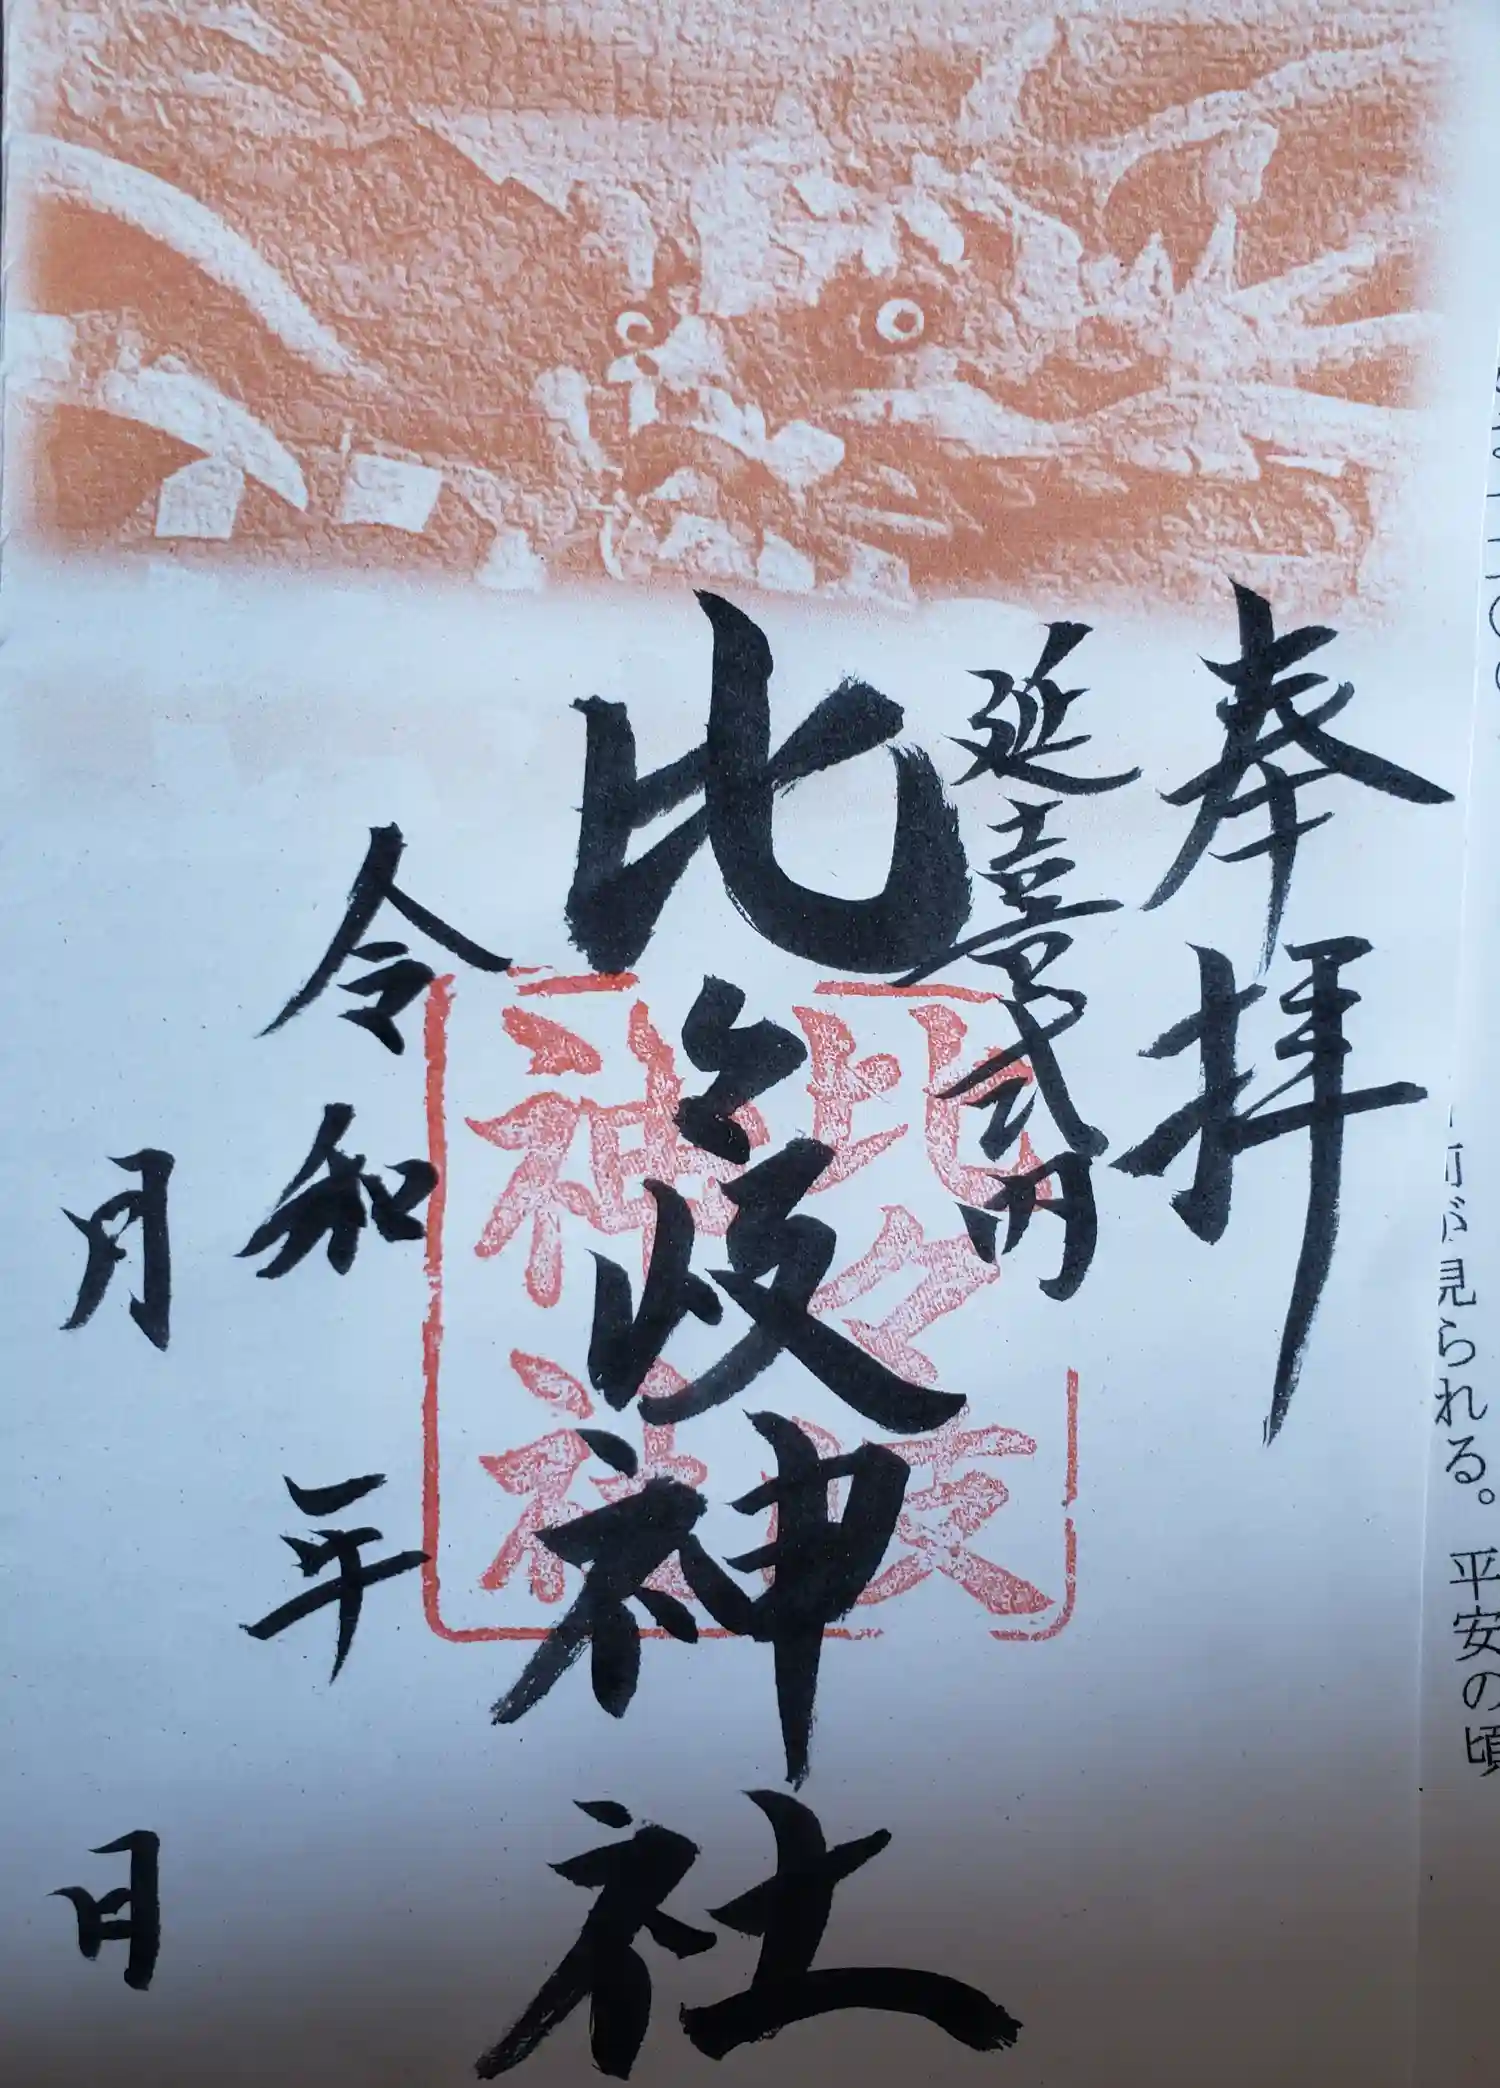 見られる。平安の頃
奉拝
延喜式内
比々岐神社
比々岐
神社
令和 年
月 日